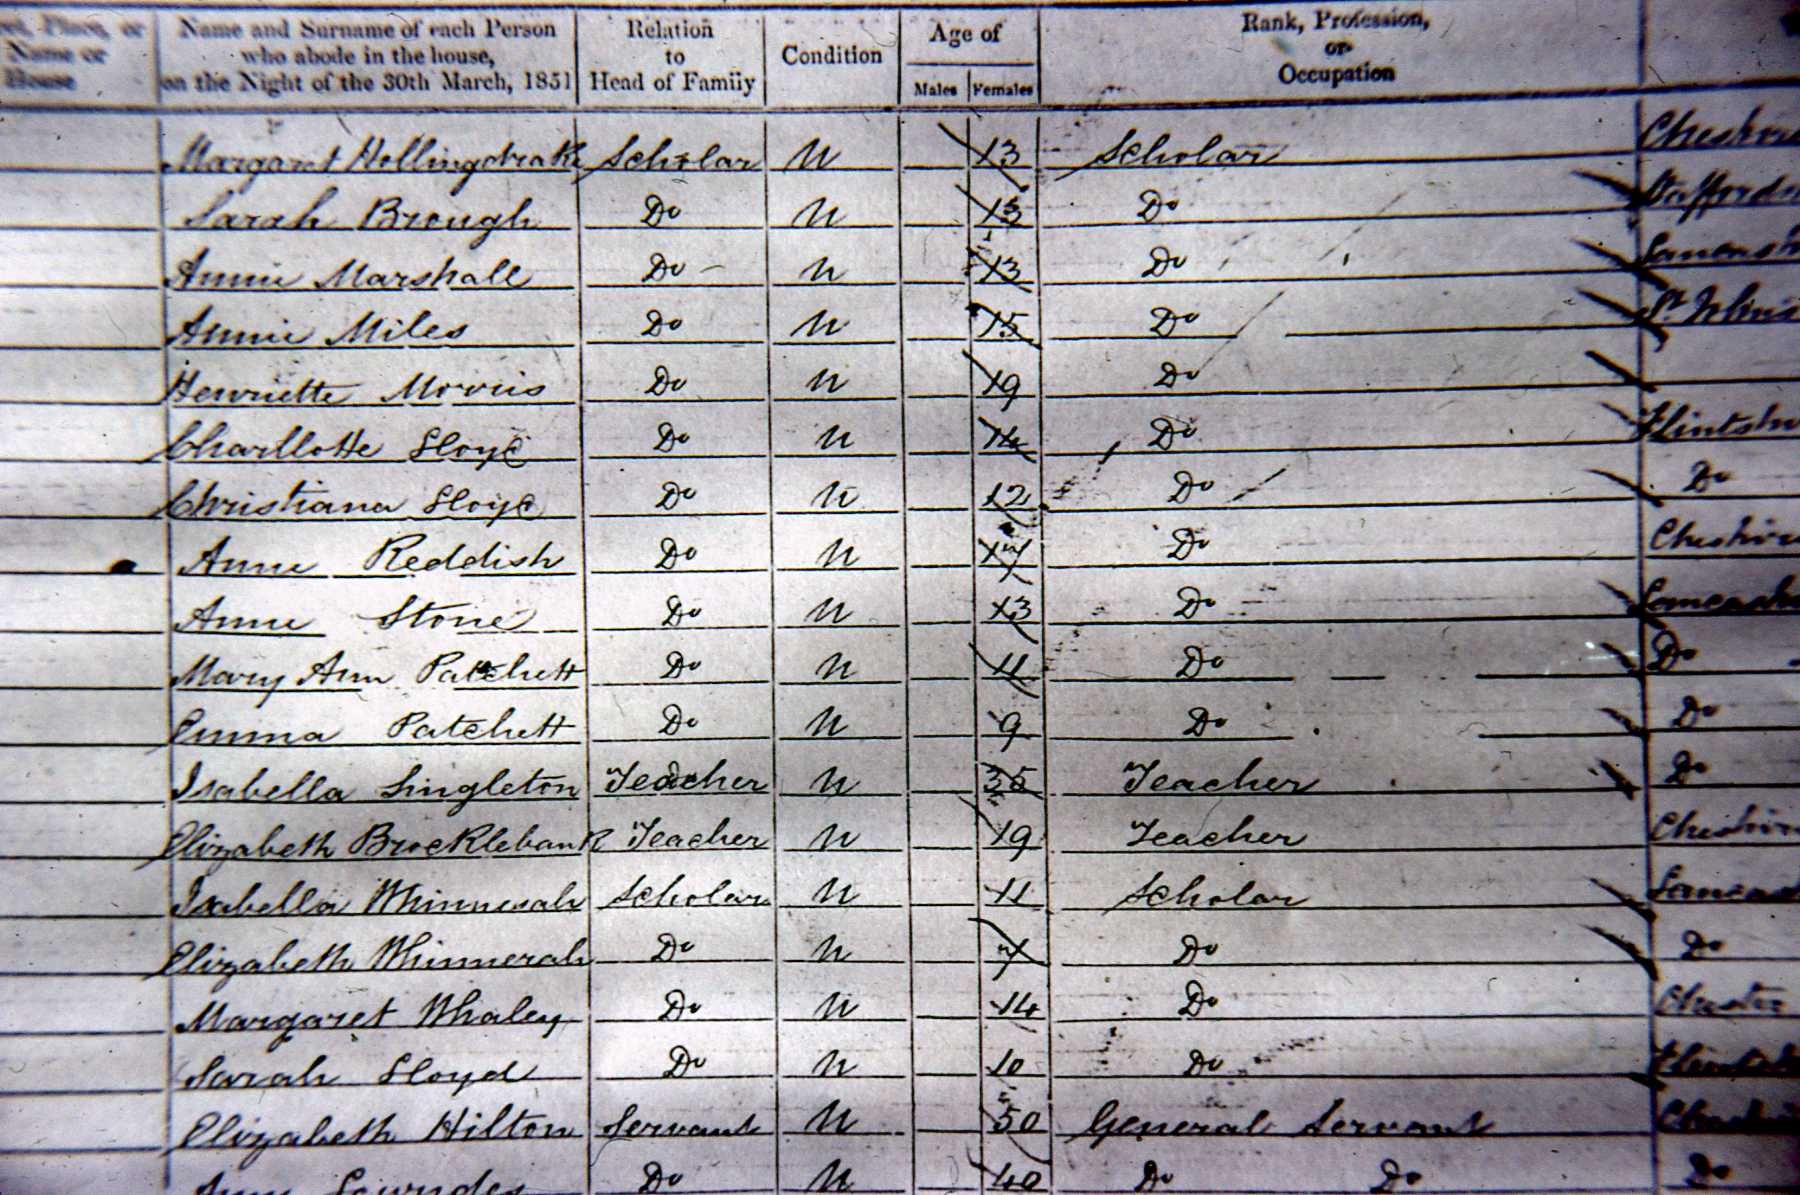 et, Place, or Name or House
Name and Surname of each Person who abode in the house, on the Night of the 30th March, 1851
Relation to Head of Family
Condition
Age of
Males Females
Rank, Profession, or Occupation
Margaret Hollingdrake Scholar U 13 Scholar Cheshire
Sarah Brough Do U 13 Do Staffords
Annie Marshall Do U 13 Do Lancash
Annie Miles Do U 15 Do St
Henriette Morris Do U 19 Do
Charllotte Lloyd Do U 14 Do Flintsh
Christiana Lloyd Do U 12 Do Do
Anne Reddish Do U Do Cheshire
Anne Stone Do U 13 Do Lancash
Mary Ann Patchett Do U 11 Do Do
Emma Patchett Do U 9 Do Do
Isabella Singleton Teacher U 35 Teacher Do
Elizabeth Brocklebank Teacher U 19 Teacher Cheshire
Isabella Whinnerah Scholar U 11 Scholar Lancash
Elizabeth Whinnerah Do U 7 Do Do
Margaret Whaley Do U 14 Do Chester
Sarah Lloyd Do U 10 Do Flintsh
Elizabeth Hilton Servant U 50 General Servant Cheshire
Ann Lowndes Do U 40 Do Do Do